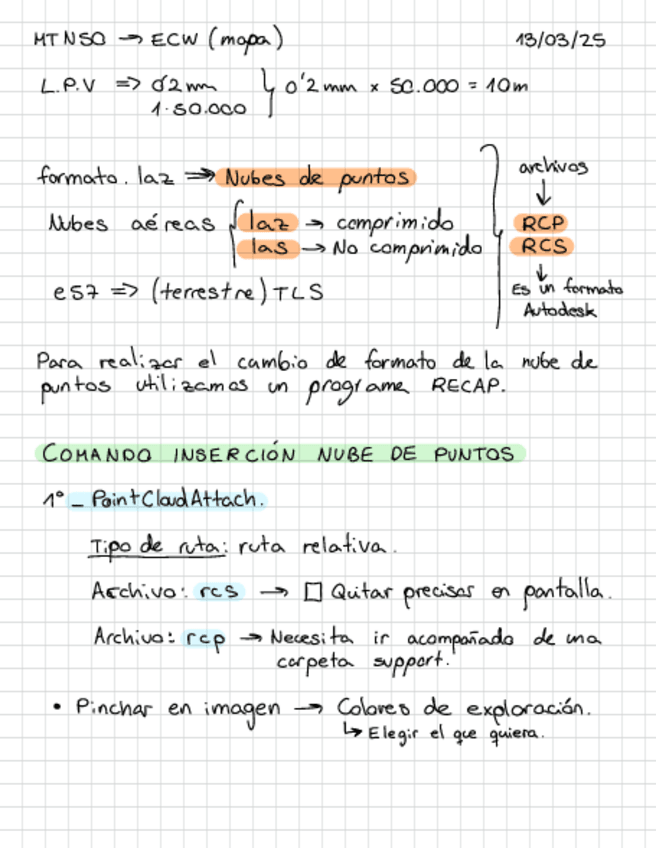 MTN50 → ECW (mapa) 13/03/25
L.P.V => 0'2mm } 0'2mm x 50.000 = 10m
1.50.000
formato.laz => Nubes de puntos
archivos
↓
Nubes aéreas { laz → comprimido
las → No comprimido
RCP
RCS
↓
Es un formato
Autodesk
e57 => (terrestre) TLS
Para realizar el cambio de formato de la nube de
puntos utilizamos un programa RECAP.
COMANDO INSERCIÓN NUBE DE PUNTOS
1º _PointCloudAttach.
Tipo de ruta: ruta relativa.
Archivo: rcs → □ Quitar precisar en pantalla.
Archivo: rcp → Necesita ir acompañado de una
carpeta support.
• Pinchar en imagen → Colores de exploración.
↳ Elegir el que quiera.